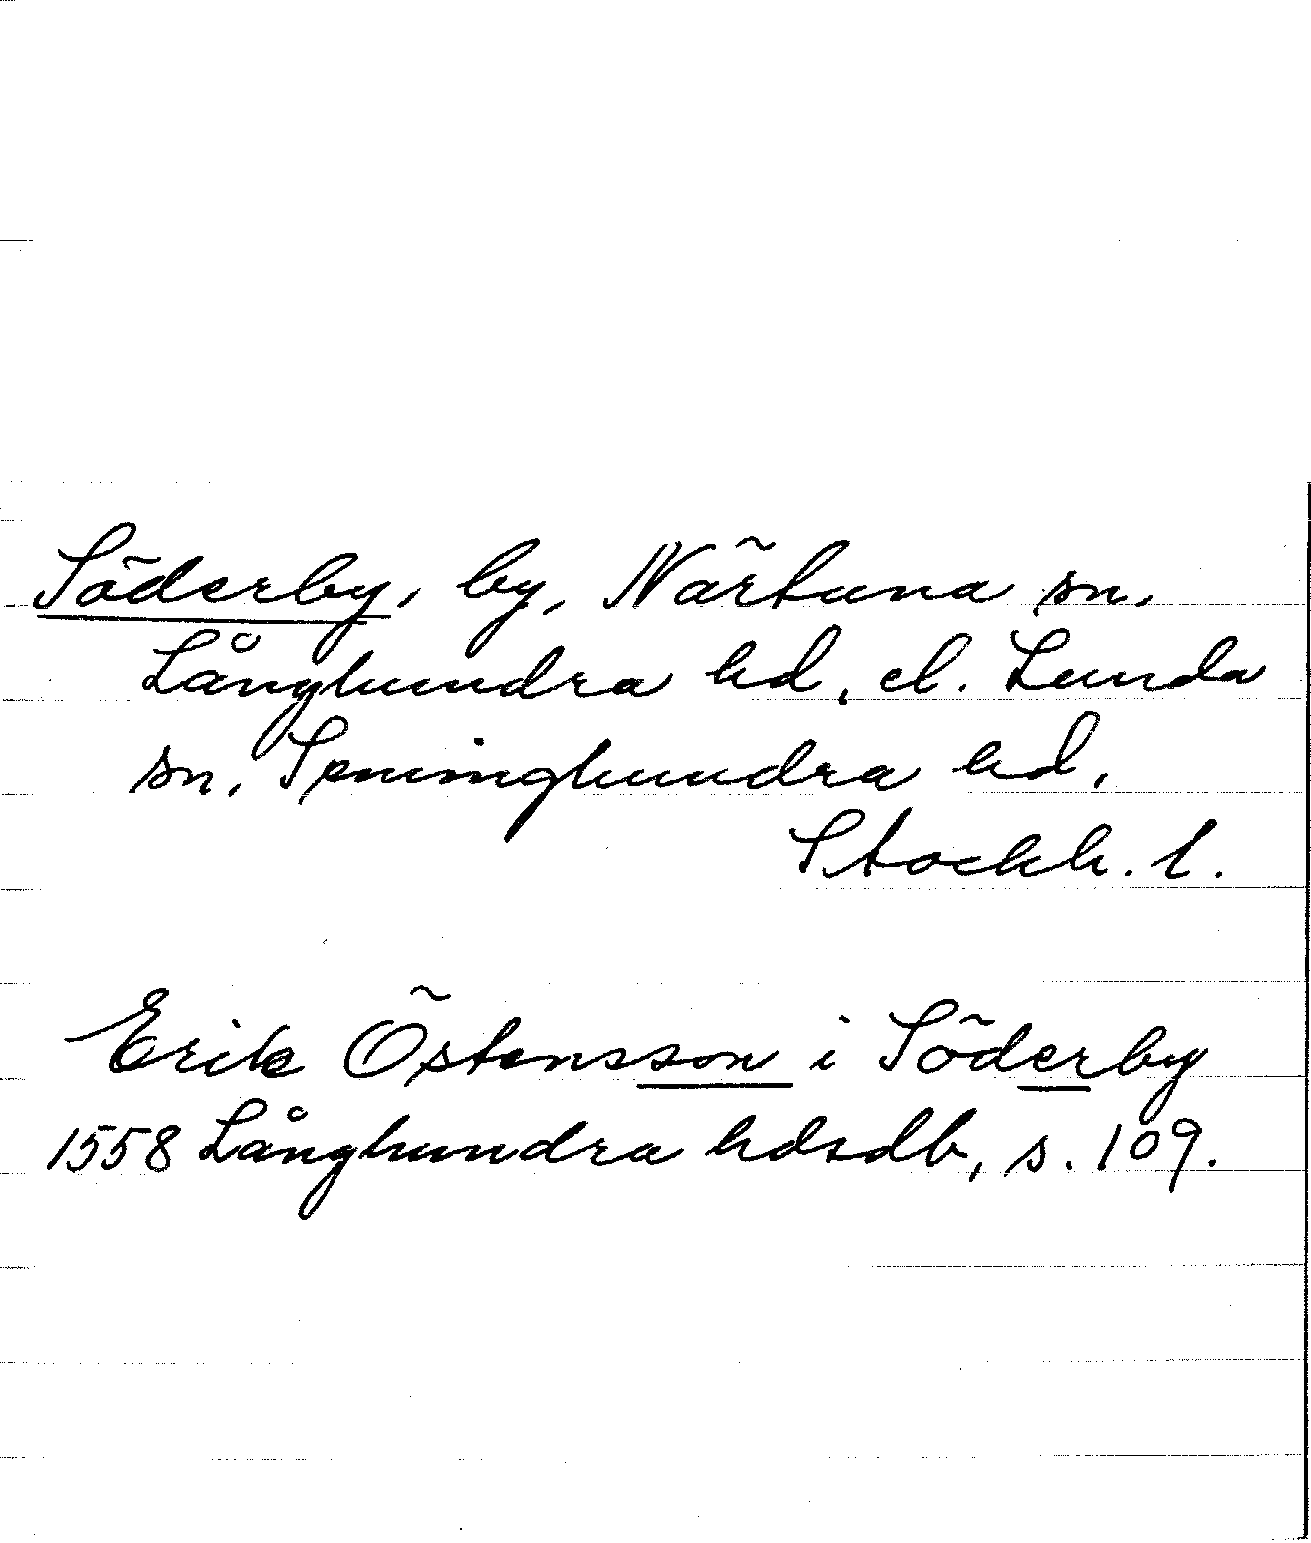 Söderby, by, Närtuna sn.
Långhundra hd, el. Lunda
sn, Seminghundra hd,
Stockh. l.
Erik Östensson i Söderby
1558 Långhundra hdsdb, s. 109.